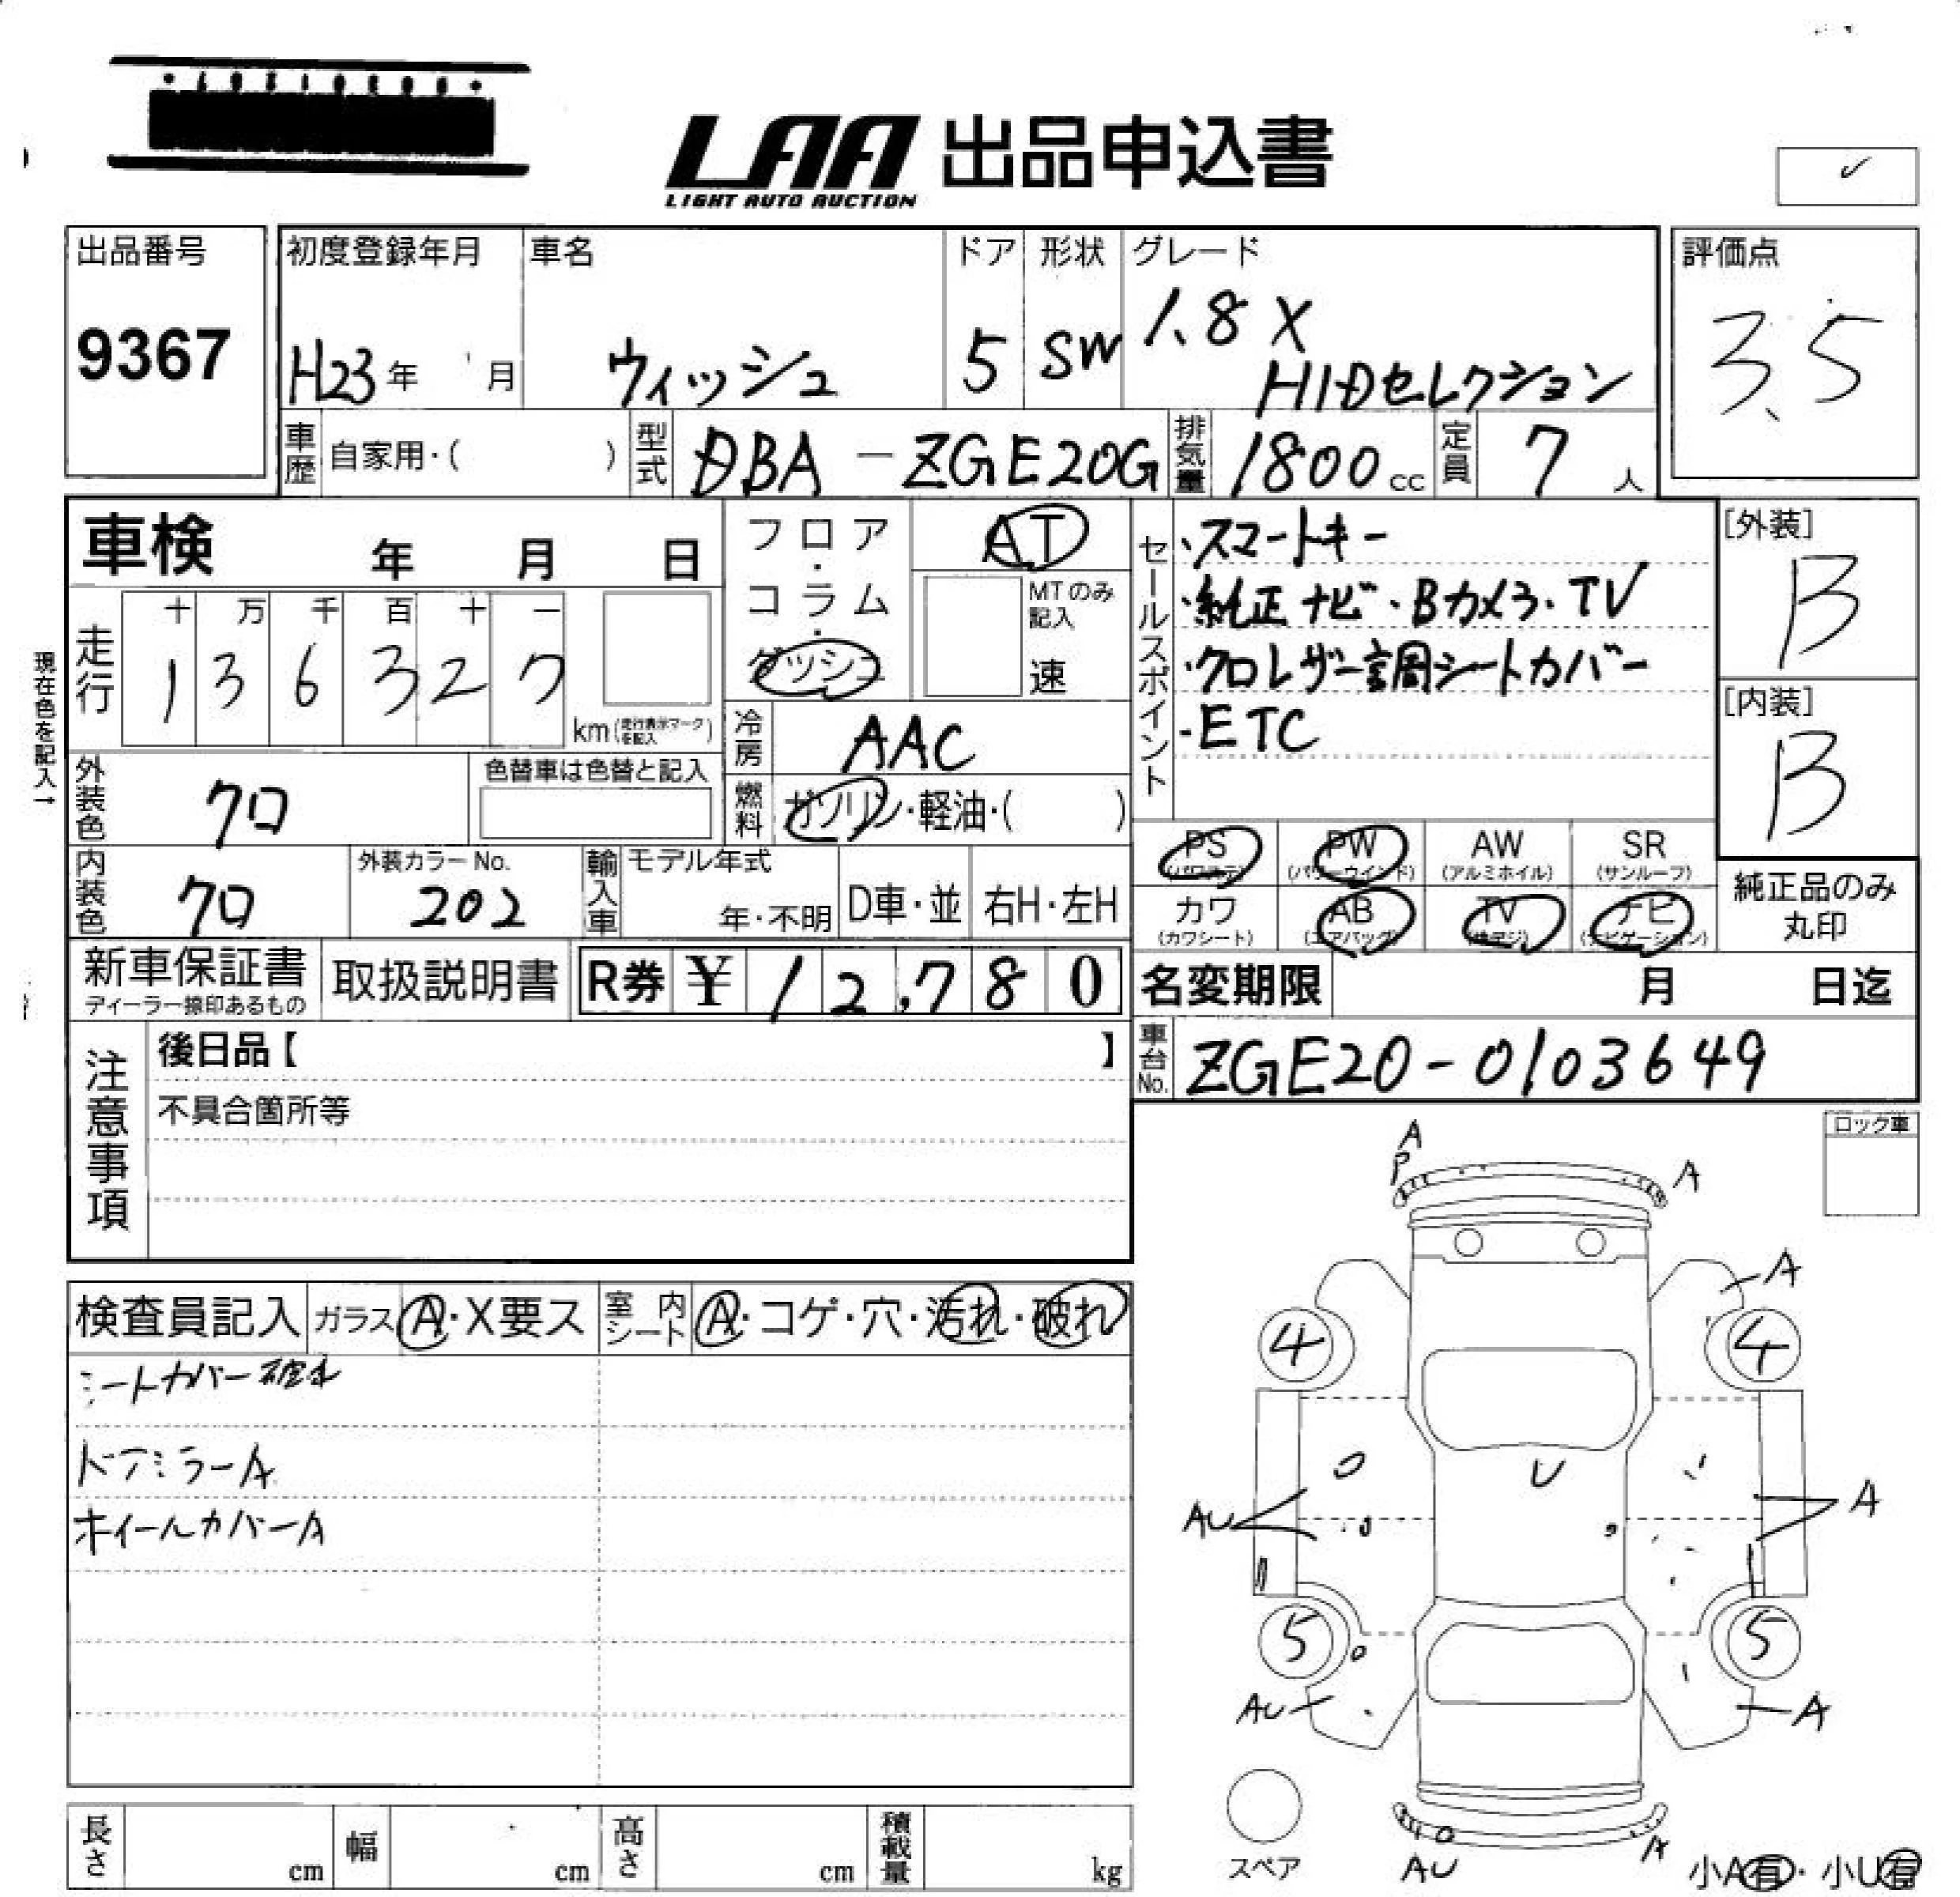 LAA 出品申込書
LIGHT AUTO AUCTION
出品番号
9367
初度登録年月
H23年 月
車名
ウィッシュ
ドア
5
形状
SW
グレード
1.8 X
HIDセレクション
評価点
3.5
車歴 自家用・( )
型式 DBA-ZGE20G
排気量 1800cc
定員 7人
車検 年 月 日
フロア・コラム・ダッシュ
AT
MTのみ記入
速
セールスポイント
・スマートキー
・純正ナビ・Bカメラ・TV
・クロレザー調シートカバー
・ETC
[外装]
B
[内装]
B
現在色を記入→
走行
十 万 千 百 十 一
1 3 6 3 2 7
km(走行表示マークを記入)
冷房 AAC
外装色 クロ
色替車は色替と記入
燃料 ガソリン・軽油・( )
内装色 クロ
外装カラーNo.
202
輸入車
モデル年式
年・不明
D車・並
右H・左H
PS (パワステ)
PW (パワーウインド)
AW (アルミホイル)
SR (サンルーフ)
カワ (カワシート)
AB (エアバッグ)
TV
ナビ (ナビゲーション)
純正品のみ
丸印
新車保証書
ディーラー捺印あるもの
取扱説明書
R券 ¥12,780
名変期限 月 日迄
車台No. ZGE20-0103649
注意事項
後日品【 】
不具合箇所等
ロック車
検査員記入
ガラス A・X要ス
室内シート A・コゲ・穴・汚れ・破れ
シートカバー破れ
ドアミラーA
ホイールカバーA
A
P
A
A
4
4
U
AU
A
5
5
AU
A
AU
A
スペア
小A有・小U有
長さ cm
幅 cm
高さ cm
積載量 kg